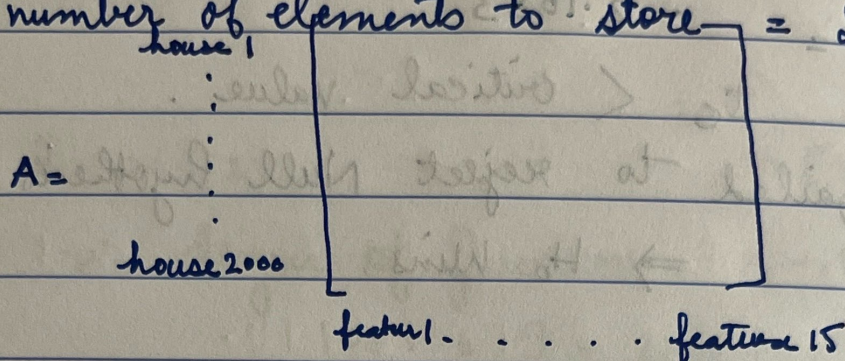 number of elements to store =
house 1
A =
house 2000
featur 1 . . . . . feature 15